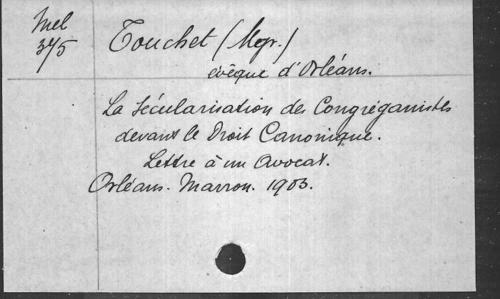 Mel
375
Touchet (Mgr.)
évêque d'Orléans.
La Sécularisation des Congréganistes
devant le Droit Canonique.
Lettre à un Avocat.
Orléans. Marron. 1903.